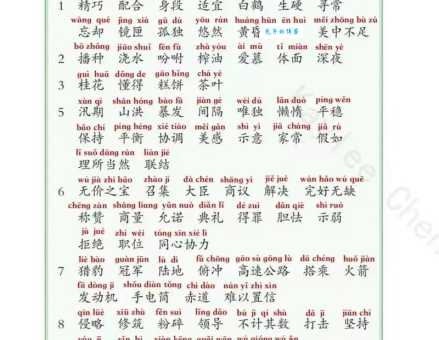 1 精巧 配合 身段 适宜 白鹤 生硬 寻常
wàng què jìng xiá gū dú yōu rán huáng hūn ēn huì měi zhōng bù zú
忘却 镜匣 孤独 悠然 黄昏 美中不足
bō zhǒng jiāo shuǐ fēn fù zhà yóu ài mù tǐ miàn shēn yè
2 播种 浇水 吩咐 榨油 爱慕 体面 深夜
guì huā dǒng de gāo bǐng chá yè
3 桂花 懂得 糕饼 茶叶
xùn qī shān hóng bào fā jiàn gé wéi dú lǎn duò píng wěn
5 汛期 山洪 暴发 间隔 唯独 懒惰 平稳
bǎo chí píng héng xié tiáo měi gǎn shì yì jiā cháng jiǎ rú
保持 平衡 协调 美感 示意 家常 假如
lǐ suǒ dāng rán lián jié
理所当然 联结
wú jià zhī bǎo zhào jí dà chén shāng yì jiě jué wán hǎo wú quē
6 无价之宝 召集 大臣 商议 解决 完好无缺
chēng zàn shāng liang yǔn nuò diǎn lǐ dé zuì dǎn qiè shì ruò
称赞 商量 允诺 典礼 得罪 胆怯 示弱
jù jué zhí wèi tóng xīn xié lì
拒绝 职位 同心协力
liè bào guàn jūn lù dì fǔ chōng gāo sù gōng lù dā chéng huǒ jiàn
7 猎豹 冠军 陆地 俯冲 高速公路 搭乘 火箭
fā dòng jī shǒu diàn tǒng chì dào nán yǐ zhì xìn
发动机 手电筒 赤道 难以置信
qīn lüè xiū zhù fěn suì lǐng dǎo bù jì qí shù dǎ jī jiān chí
8 侵略 修筑 粉碎 领导 不计其数 打击 坚持